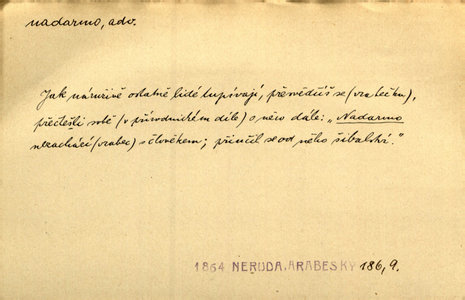 nadarmo, adv.
Jak náruživě ostatně lidé lupívají, přesvědčíš se (vrabečku),
přečteš-li sobě (v přírodnickém díle) o něco dále: „Nadarmo
neobchází (vrabec) s člověkem; přiučil se od něho šibalství.“
1864 NERUDA, ARABESKY 186,9.